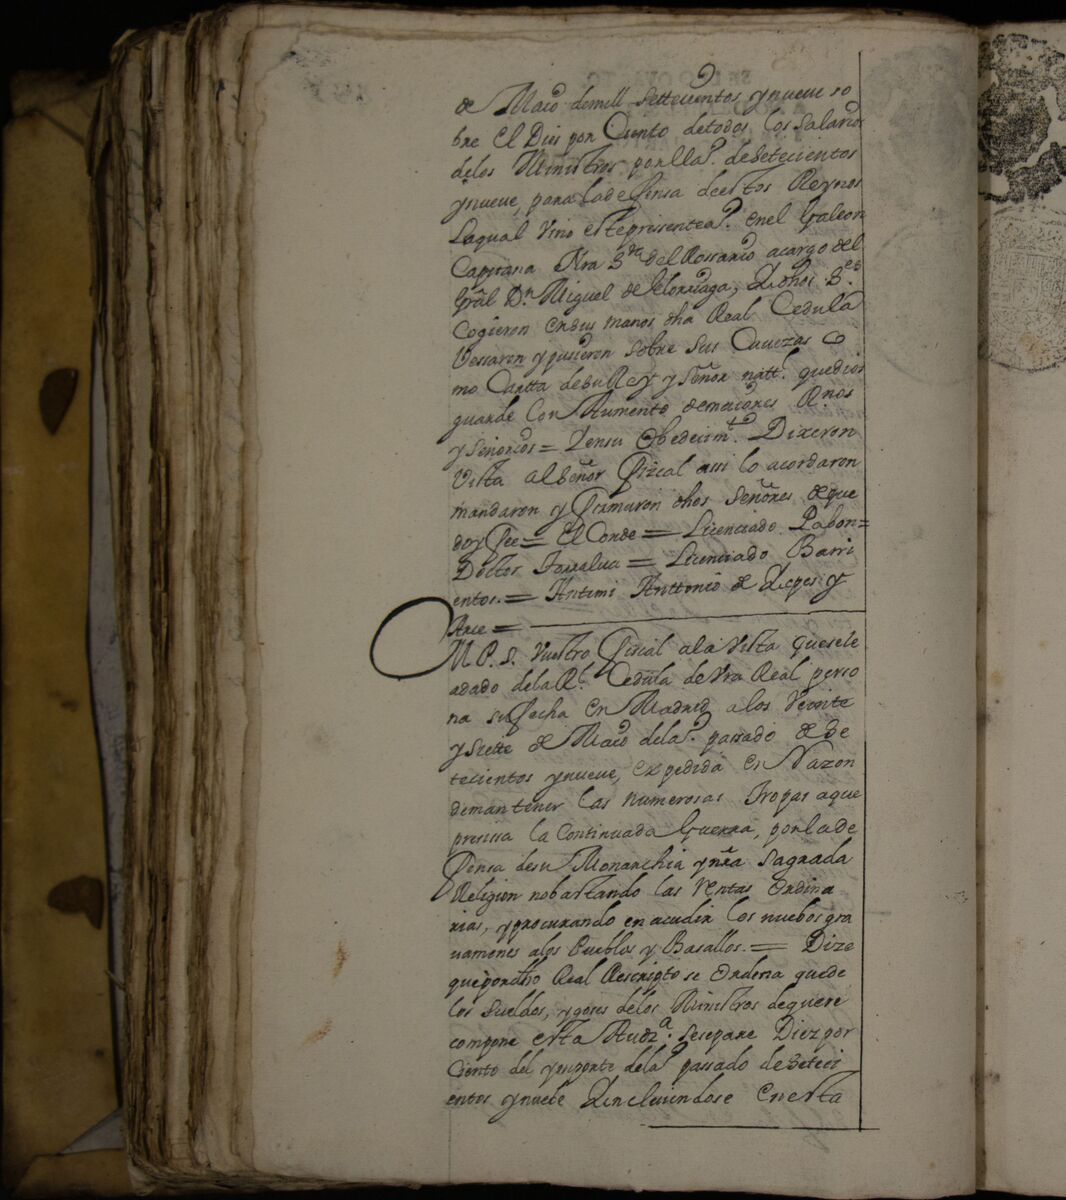 de Maio demill Settecientos ynueve so
bre El Dies por Ciento detodos los Salarios
delos Ministros por lla.º desetecientos
ynueve, para lade fensa destos Reynos
Laqual Vino estepresentea.º enel Galeon
Capitana Nra S.ra del Rossario acargo del
Gral D.n Miguel de Elorriaga, dhos S.es
Cogieron ensus manos dha Real Cedula
Vessaron ypusieron sobre Sus Cavezas Co
mo Cartta desu Rey y señor natt.l quedios
guarde Con Aumento demaiores R.nos
y señorios = Yensu Obedecim.to Dixeron
Vista al Señor Fiscal assi lo acordaron
mandaron y firmaron dhos Señores, deque
doy fee = El Conde = Licenciado Pabon =
Doctor Torralva = Licenciado Barri
entos. = Antemi Anttonio de Yepes y
Arze =
M. P. S. Vuestro fiscal ala Vista quesele
adado dela R.l Cedula de Vra Real perso
na sufecha en Madrid alos Veinte
ysiette de Maio dela.º passado de Se
tecientos ynueve, expedida en Razon
demantener las numerosas Tropas aque
precissa la Continuada Guerra, por lade
fensa desu Monarchia ynra Sagrada
Religion nobastando las Rentas Ordina
rias, yprocurando en acudir los nuebos gra
vamenes alos Pueblos y Basallos. = Dize
quepordho Real Rescripto se Ordena quede
los sueldos, ygoses delos Ministros dequese
compone esta Audz.ª sesepare Diez por
Ciento del ymporte dela.º passado deseteci
entos ynuebe Yncluiendose Enesta